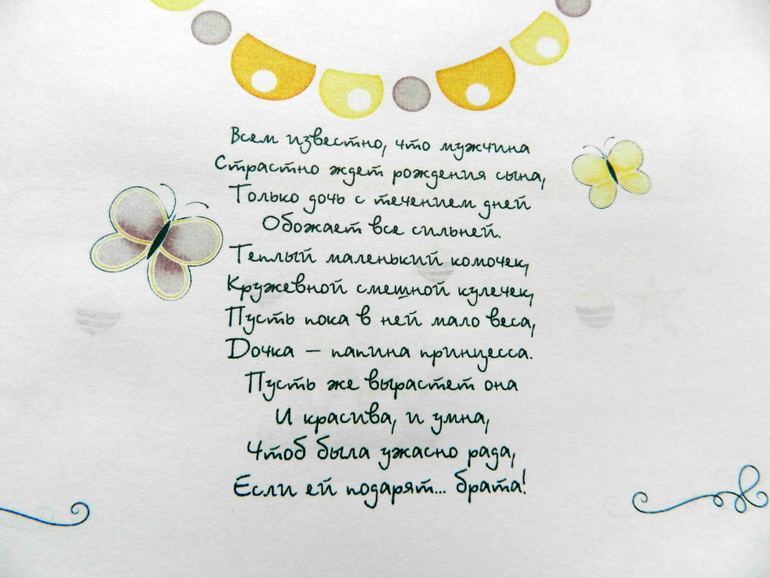 Всем известно, что мужчина
Страстно ждет рождения сына,
Только дочь с течением дней
Обожает все сильней.
Теплый маленький комочек,
Кружевной смешной кулечек,
Пусть пока в ней мало веса,
Дочка – папина принцесса.
Пусть же вырастет она
И красива, и умна,
Чтоб была ужасно рада,
Если ей подарят... брата!